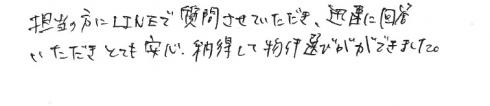 担当の方にLINEで質問させていただき、迅速に回答
いただきとても安心、納得して物件選びがができました。